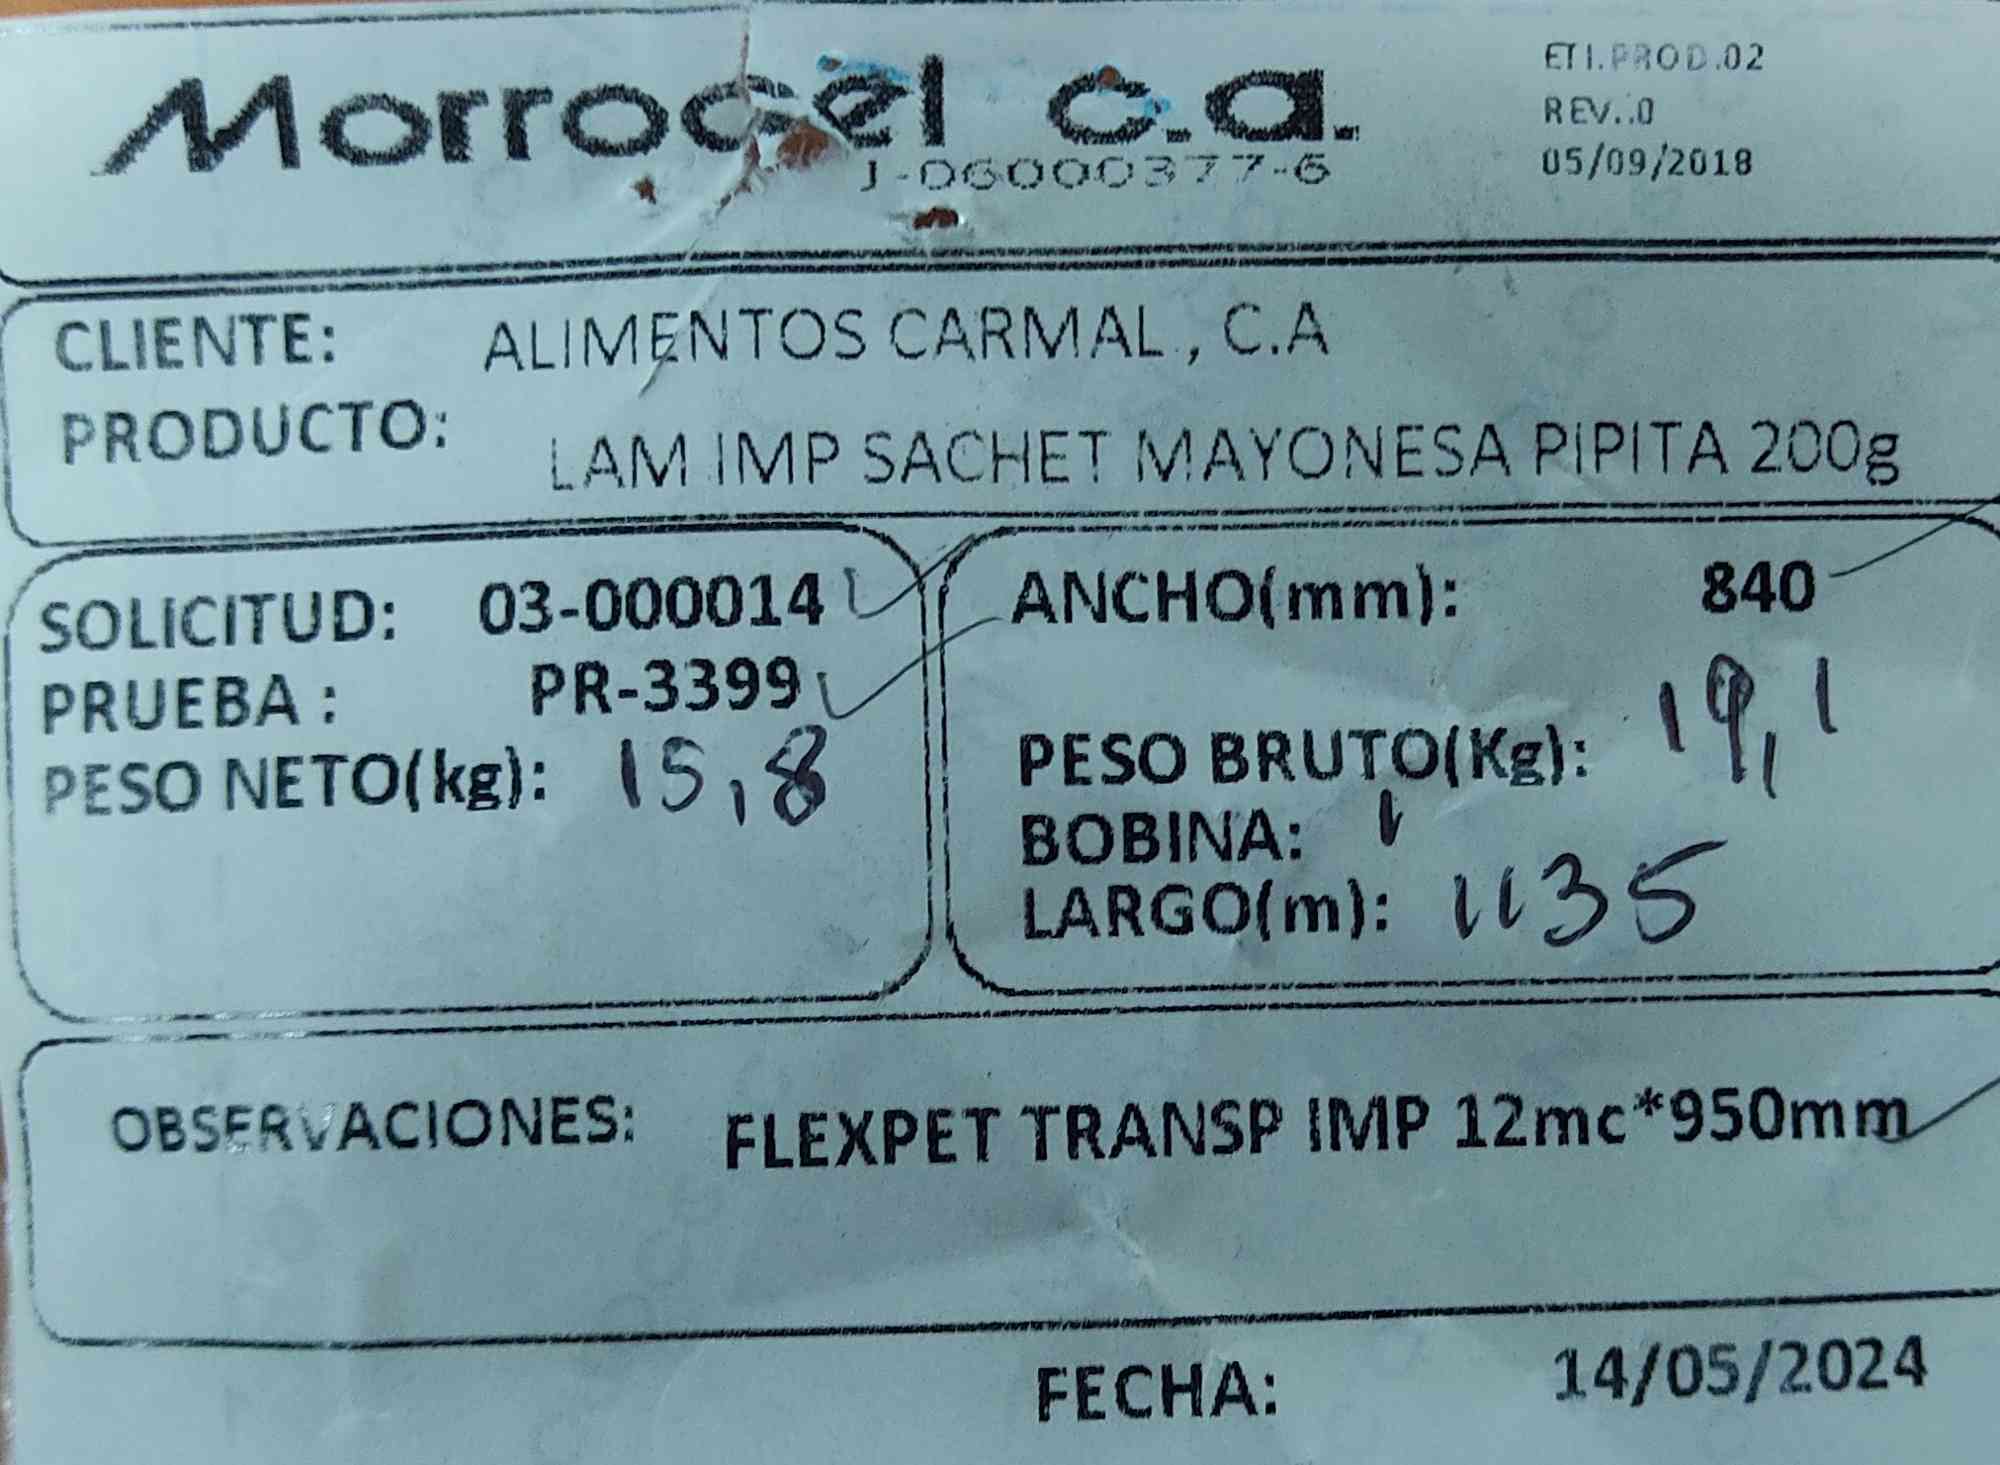 Morrocel c.a.
J-06000377-6
ETI.PROD.02
REV..0
05/09/2018
CLIENTE: ALIMENTOS CARMAL , C.A
PRODUCTO: LAM IMP SACHET MAYONESA PIPITA 200g
SOLICITUD: 03-000014
PRUEBA : PR-3399
PESO NETO(kg): 15,8
ANCHO(mm): 840
PESO BRUTO(Kg): 19,1
BOBINA: 1
LARGO(m): 1135
OBSERVACIONES: FLEXPET TRANSP IMP 12mc*950mm
FECHA: 14/05/2024